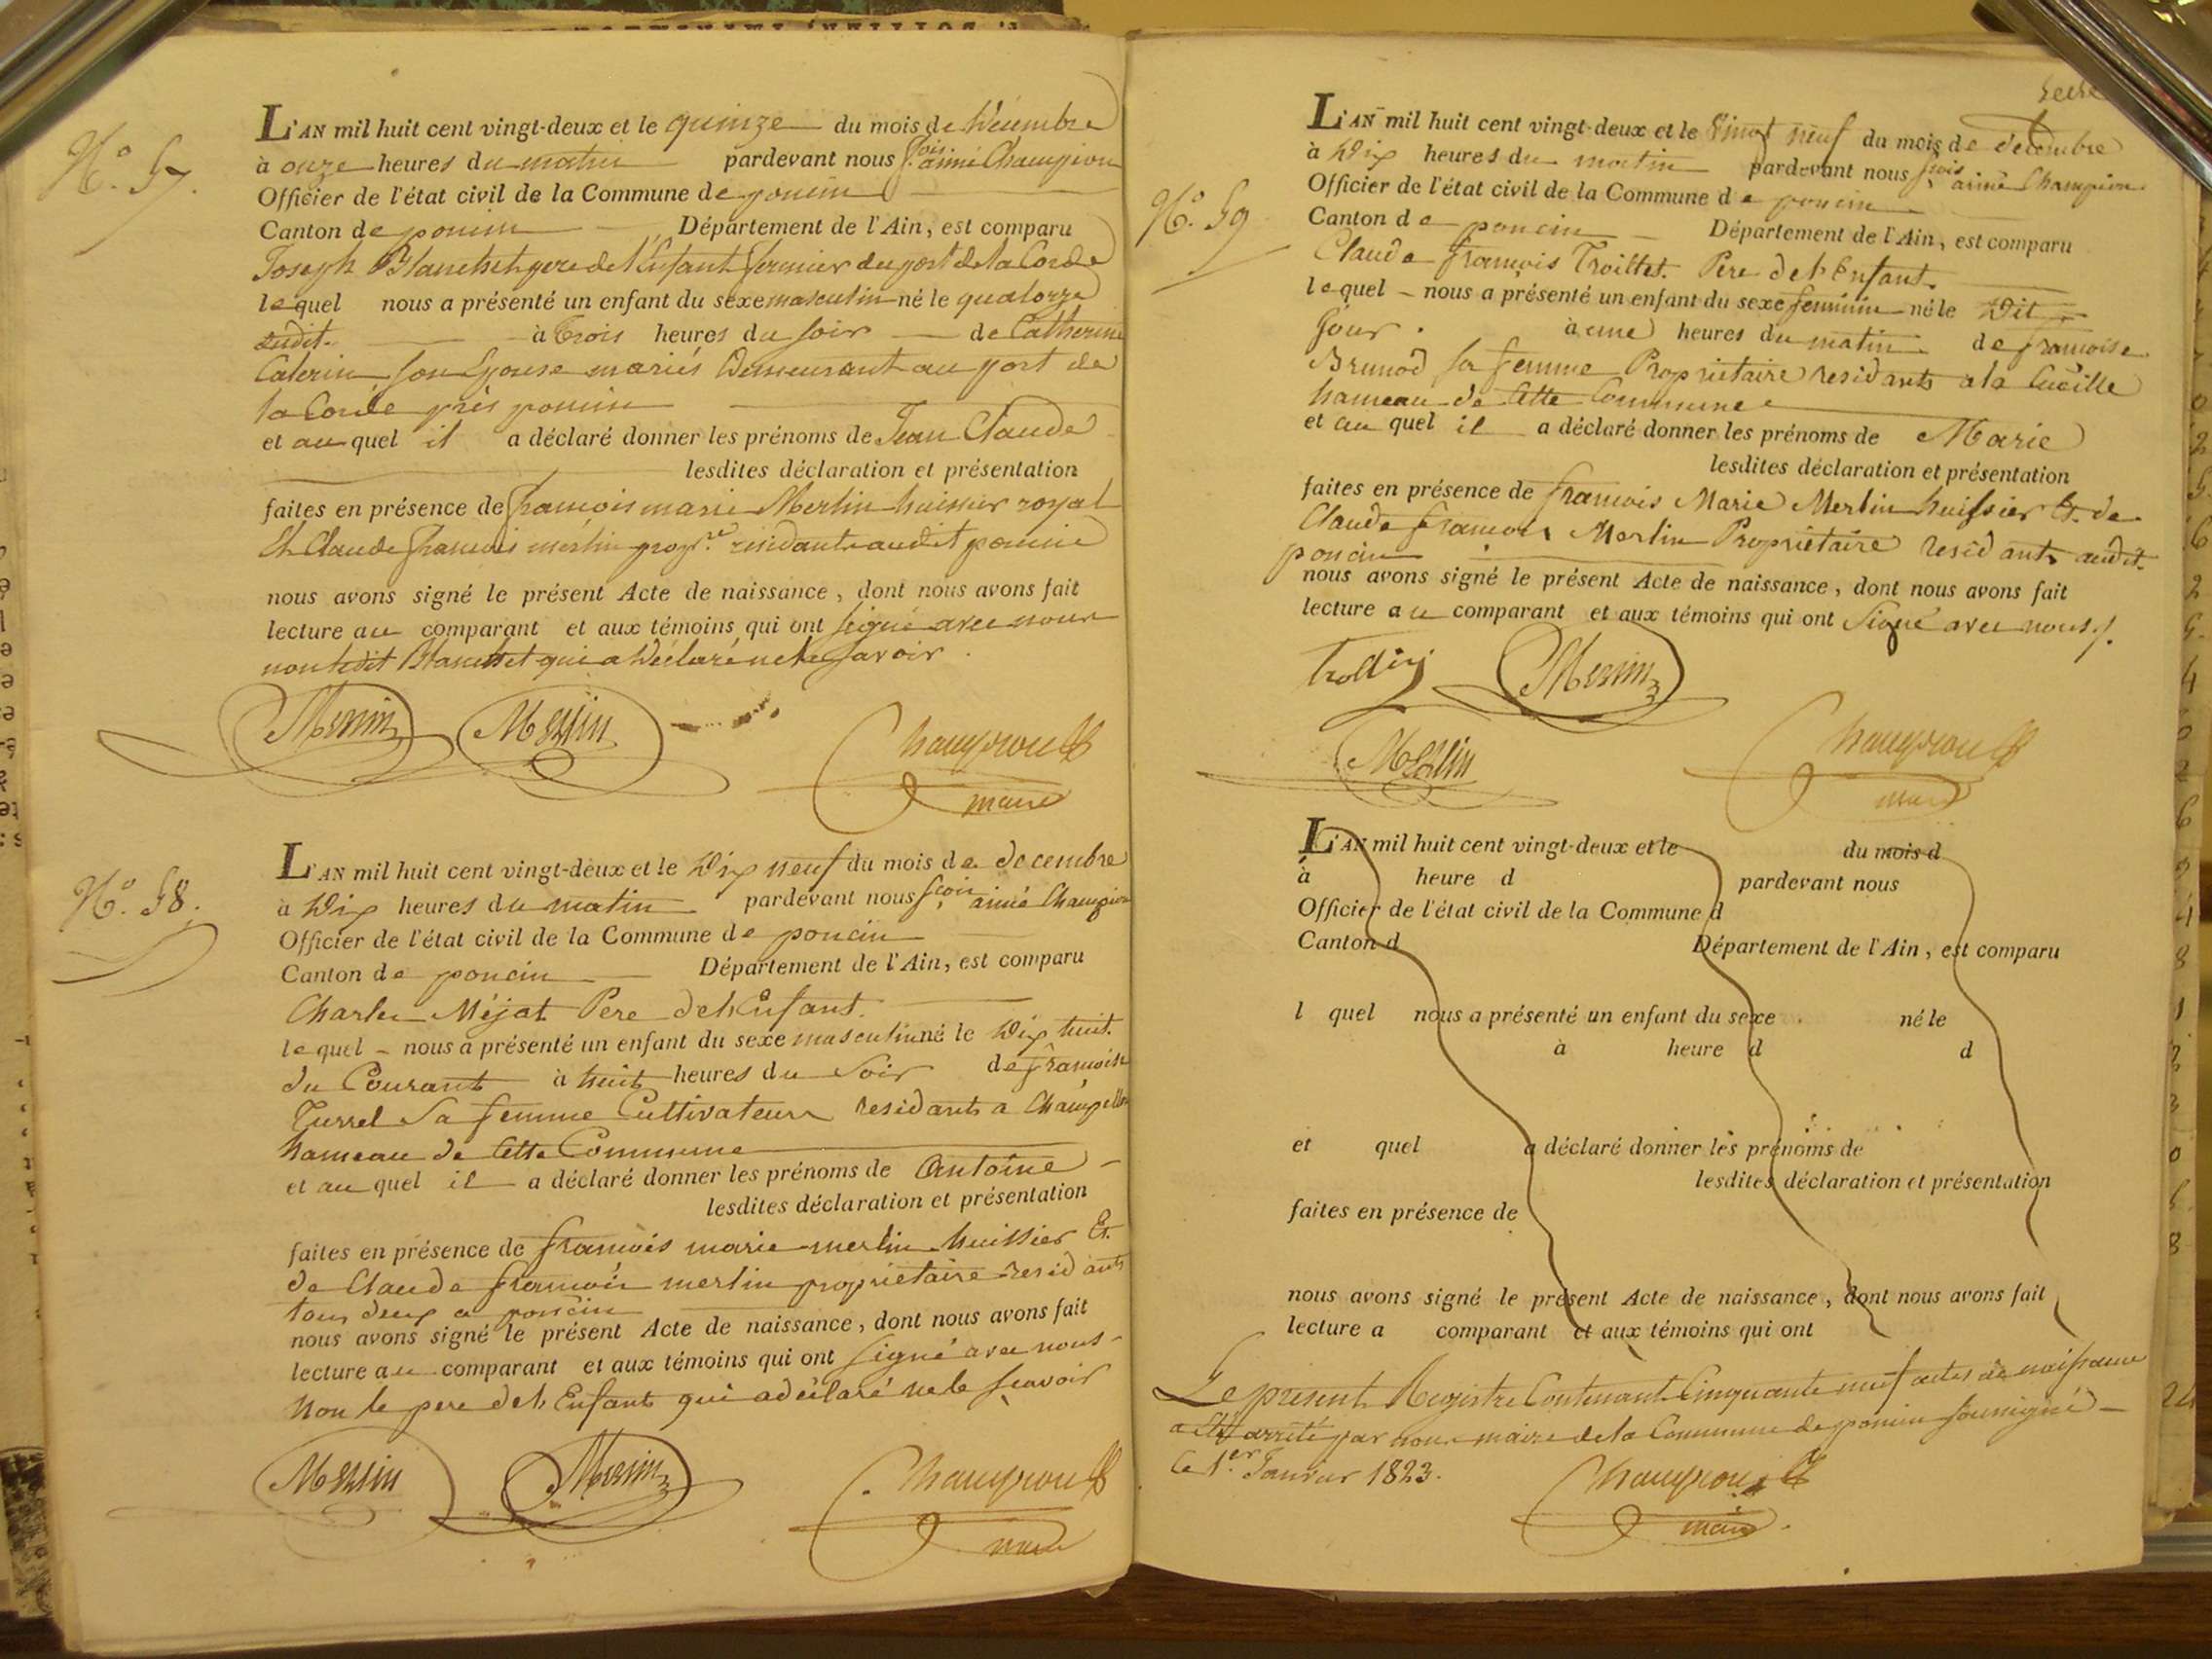 N.° 57.
L'AN mil huit cent vingt-deux et le quinze du mois de Décembre
à onze heures du matin pardevant nous f.ois aimé Champion
Officier de l'état civil de la Commune de poncin
Canton de poncin Département de l'Ain, est comparu
Joseph Blanchet pere de l'Enfant fermier du port de la Corde
lequel nous a présenté un enfant du sexe masculin né le quatorze
sudit à trois heures du soir de Catherine
Caterin son Epouse mariés Demeurant au port de
la Corde près poncin
et au quel il a déclaré donner les prénoms de Jean Claude
lesdites déclaration et présentation
faites en présence de françois marie Merlin huissier royal
Et Claude francois merlin propr.re residants audit poncin
nous avons signé le présent Acte de naissance, dont nous avons fait
lecture au comparant et aux témoins qui ont signé avec nous
non ledit Blanchet qui a Déclaré ne le savoir.
Merlin Merlin Champion
maire
N.° 58.
L'AN mil huit cent vingt-deux et le Dix neuf du mois de decembre
à Dix heures du matin pardevant nous fçois aimé Champion
Officier de l'état civil de la Commune de poncin
Canton de poncin Département de l'Ain, est comparu
Charles Méjat Pere de l'Enfant.
lequel nous a présenté un enfant du sexe masculin né le Dix huit
du Courant à huit heures du Soir de françoise
Turrel Sa femme Cultivateurs residants a
hameau de Cette Commune
et au quel il a déclaré donner les prénoms de Antoine
lesdites déclaration et présentation
faites en présence de françois marie merlin huissier Et
de Claude françois merlin proprietaire residants
tous deux a poncin
nous avons signé le présent Acte de naissance, dont nous avons fait
lecture au comparant et aux témoins qui ont signé avec nous
Non le pere de l'Enfant qui a déclaré ne le sçavoir
Merlin Merlin Champion
maire
N.° 59
L'AN mil huit cent vingt-deux et le Vingt neuf du mois de décembre
à Dix heures du matin pardevant nous fçois aimé Champion
Officier de l'état civil de la Commune de poncin
Canton de poncin Département de l'Ain, est comparu
Claude françois Trolliet Pere de l'Enfant.
lequel nous a présenté un enfant du sexe feminin né le Dit
Jour à une heures du matin de françoise
Brunod sa femme Proprietaire residants a la Cueille
hameau de Cette Commune
et au quel il a déclaré donner les prénoms de Marie
lesdites déclaration et présentation
faites en présence de francois Marie Merlin huissier Et de
Claude francois Merlin Propriétaire residants audit
poncin
nous avons signé le présent Acte de naissance, dont nous avons fait
lecture au comparant et aux témoins qui ont Signé avec nous
Merlin
Merlin Champion
maire
L'AN mil huit cent vingt-deux et le du mois d
à heure d pardevant nous
Officier de l'état civil de la Commune d
Canton d Département de l'Ain, est comparu
l quel nous a présenté un enfant du sexe né le
à heure d d
et quel a déclaré donner les prénoms de
lesdites déclaration et présentation
faites en présence de
nous avons signé le présent Acte de naissance, dont nous avons fait
lecture a comparant et aux témoins qui ont
Le present Registre Contenant Cinquante neuf actes de naissance
a été arrêté par nous maire de la Commune de poncin soussigné
le 1.er Janvier 1823.
Champion
maire